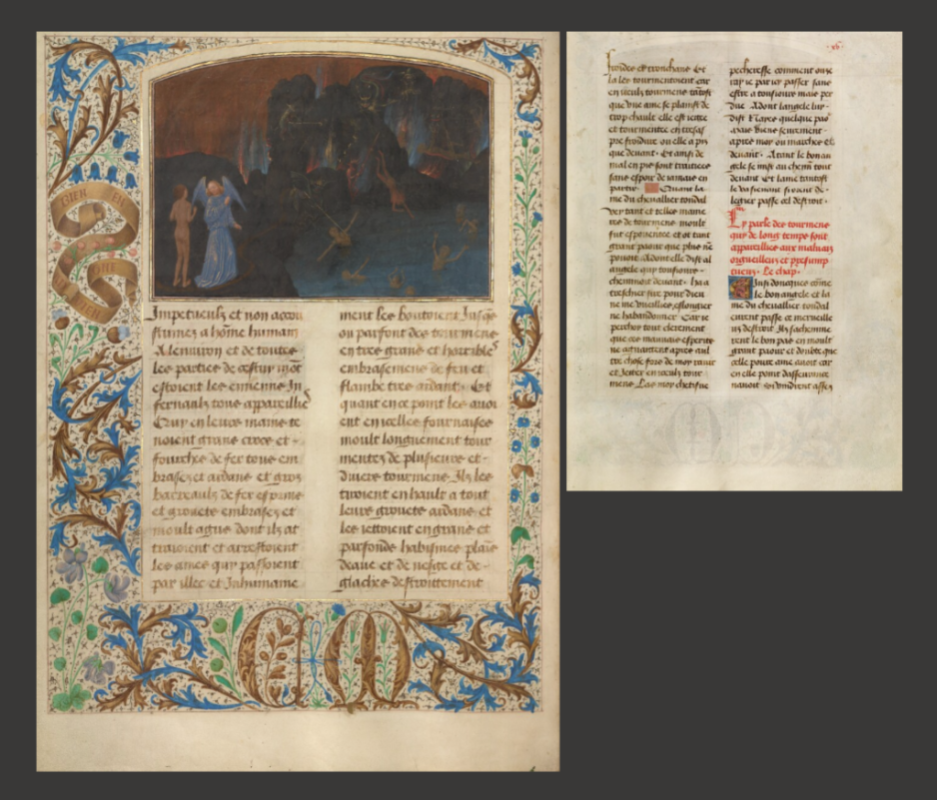 Impetueulx et non acou
stumes a home humain
A lenuiron et de toutes
les parties de cestui mot
estoient les ennemis In
fernaulx tous appareillies
Quy en leurs mains te
noient grans crocs et
fourches de fer tous em
brases et ardans et gros
barreaulx de fer espinus
et grouets embrases et
moult agus dont ilz at
traioient et arrestoient
les ames quy passoient
par illec et Inhumaine
ment les boutoient Jusqs
ou parfont des tourmens
en tres grans et horribles
embrasemens de feu et
flambe tres ardant Et
quant en ce point les auoi
ent en icelles fournaises
moult longuement tour
mentes de plusieurs et
diuers tourmens Ilz les
tiroient en hault a tout
leurs grouets ardans et
les iettoient en grans et
parfonds habismes plais
deaue et de neige et de
glaches destroittement
froides et trenchans Et
la les tourmentoient car
en iceulx tourmens tantost
que vne ame se plainst de
trop chault elle est iettee
et tourmentee en tresas
pre froidure ou elle a pis
que deuant Et ainsi de
mal en pis sont traitties
sans espoir de iamais en
partir Quant la
me du cheuallier tondal
vey tant et telles manie
res de tourmens moult
fut espouentee et ot tant
grant paour que plus ne
pouoit Adont elle dist al
angele quy tousiours
cheminoit deuant Ha a
treschier sire pour dieu
ne me vueillies eslongier
ne habandonner Car ie
perchoy tout clerement
que ces mauuais esperits
ne aguaittent apres aul
tre chose fors de moy rauir
et Jetter en iceulx tour
mens Las moy chetifue
pecheresse comment oseray
ie par icy passer sans
estre a tousiours mais per
due Adont langele luy
dist Nayes quelque paour
mais viens seurement
apres moy ou marches cy
deuant Atant le bon an
gele se mist au chemin tout
deuant Et lame tantost
le va sieuant si vont de
legier passe cel destroit
Cy parle des tourmens
quy de long temps sont
appareillies aux maluais
orgueilleux et presump
tueux Le chap
Ainsi doncques come
le bon angele et la
me du cheuallier tondal
eurent passe ce merueille
ux destroit Ilz sachemine
rent le bon pas en moult
grant paour et doubte que
celle poure ame auoit car
en elle point dasseurance
nauoit si vindrent asses